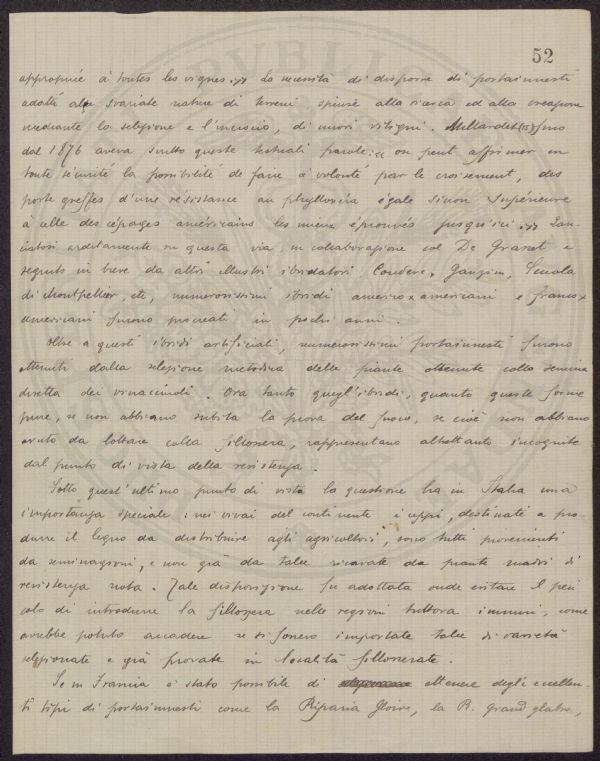 52
appropriée à toutes les vignes. » La necessità di disporre di portainnesti
adatti alle svariate nature di terreni, spinse alla ricerca ed alla creazione
mediante la selezione e l'incrocio, di nuovi vitigni. Millardet (15) fino
dal 1876 aveva scritto queste testuali parole: « on peut affirmer en
toute sécurité la possibilité de faire à volonté par le croisement, des
porte greffes d'une résistance au phylloxéra égale sinon supérieure
à celle des cépages américains les mieux éprouvés jusqu'ici. » Lan-
ciatosi arditamente su questa via, in collaborazione col De Grasset e
seguito in breve da altri illustri ibridatori, Couderc, Ganzin, Scuola
di Montpellier, etc, numerosissimi ibridi americo x americani e franco x
americani furono procreati in pochi anni.
Oltre a questi ibridi artificiali, numerosissimi portainnesti furono
ottenuti dalla selezione metodica delle piante ottenute colla semina
diretta dei vinaccinoli. Ora tanto quegl'ibridi, quanto queste forme
pure, se non abbiano subita la prova del fuoco, se cioè non abbiano
avuto da lottare colla fillossera, rappresentano altrettante incognite
dal punto di vista della resistenza.
Sotto quest'ultimo punto di vista la questione ha in Italia una
importanza speciale: nei vivai del continente i ceppi, destinati a pro
durre il legno da distribuire agli agricoltori, sono tutti provenienti
da seminagioni, e non già da talee ricavate da piante madri di
resistenza nota. Tale disposizione fu adottata onde evitare il peri
colo di introdurre la fillossera nelle regioni tuttora immuni, come
avrebbe potuto accadere se si fossero importate talee di varietà
selezionate e già provate in località fillosserate.
Se in Francia è stato possibile di ottenere degli eccellen-
ti tipi di portainnesti come la Riparia Gloire, la R. grand glabre,